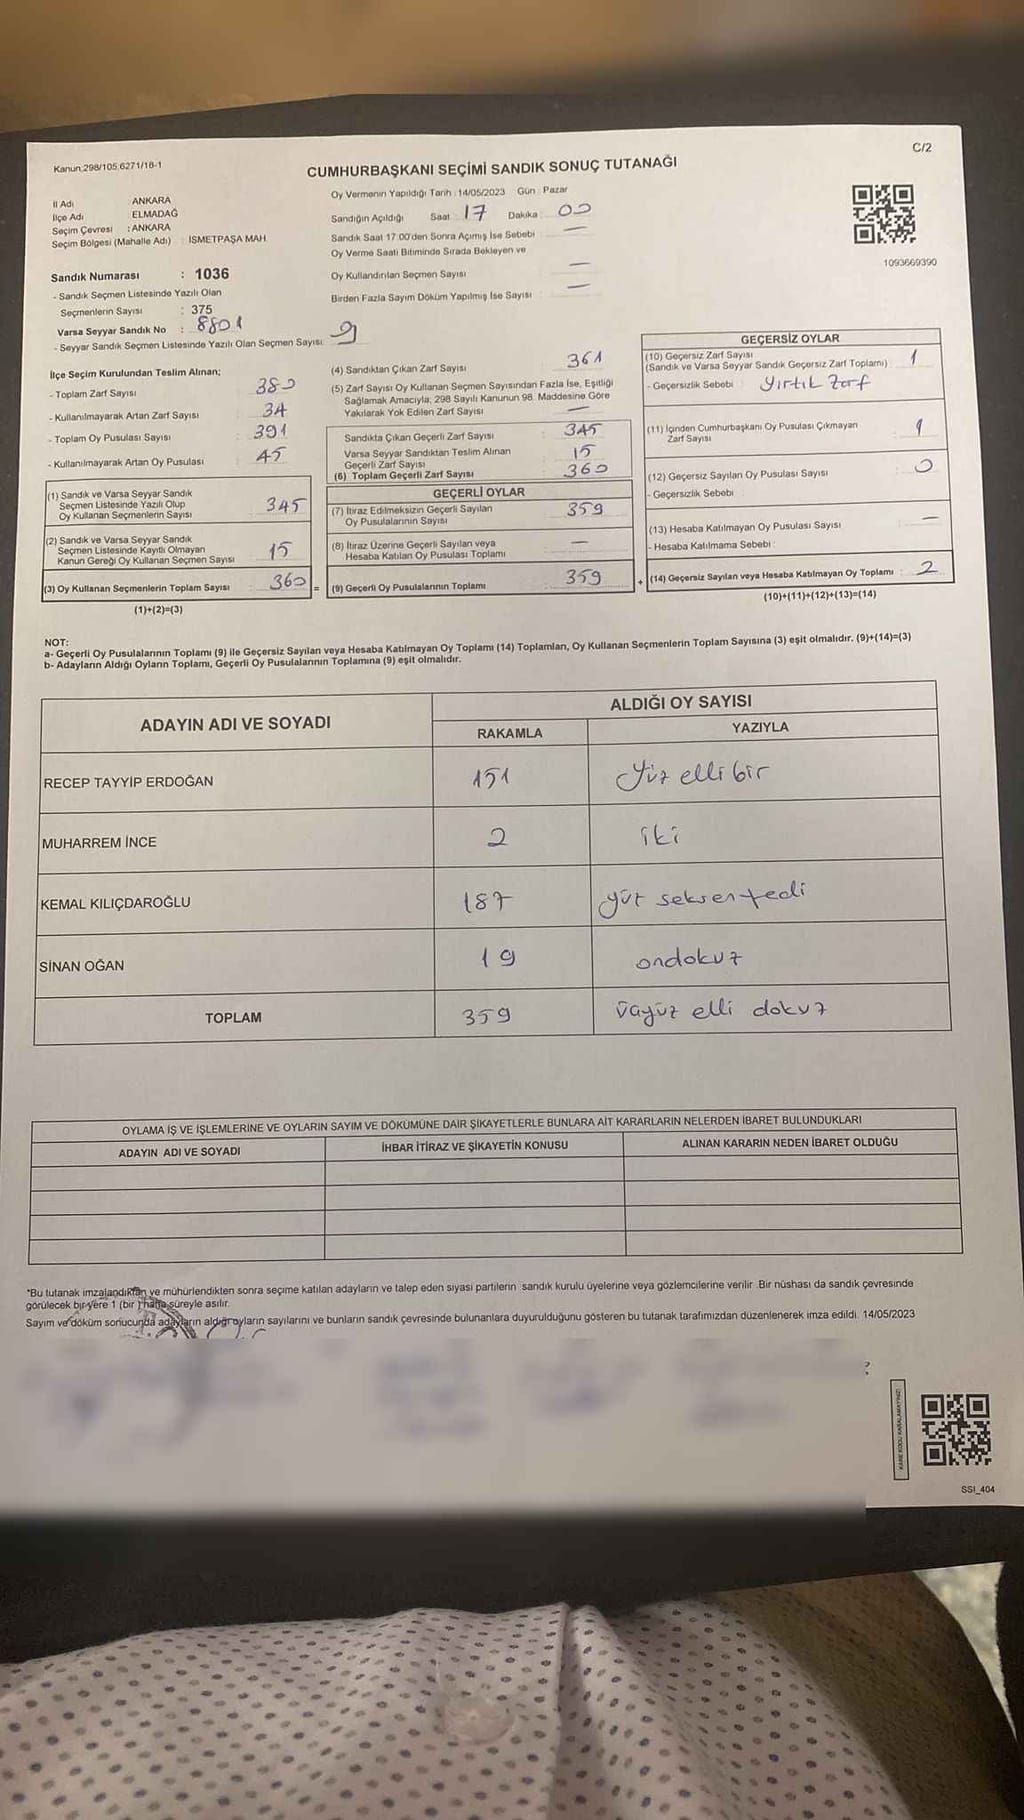 Kanun:298/105,6271/18-1
C/2
CUMHURBAŞKANI SEÇİMİ SANDIK SONUÇ TUTANAĞI
İl Adı : ANKARA
İlçe Adı : ELMADAĞ
Seçim Çevresi : ANKARA
Seçim Bölgesi (Mahalle Adı) : İSMETPAŞA MAH
Sandık Numarası : 1036
- Sandık Seçmen Listesinde Yazılı Olan
Seçmenlerin Sayısı : 375
Varsa Seyyar Sandık No : 8801
- Seyyar Sandık Seçmen Listesinde Yazılı Olan Seçmen Sayısı: 9
Oy Vermenin Yapıldığı Tarih : 14/05/2023 Gün : Pazar
Sandığın Açıldığı Saat : 17 Dakika : 00
Sandık Saat 17:00'den Sonra Açımış İse Sebebi : —
Oy Verme Saati Bitiminde Sırada Bekleyen ve
Oy Kullandırılan Seçmen Sayısı : —
Birden Fazla Sayım Döküm Yapılmış İse Sayısı : —
1093669390
İlçe Seçim Kurulundan Teslim Alınan;
- Toplam Zarf Sayısı : 380
- Kullanılmayarak Artan Zarf Sayısı : 34
- Toplam Oy Pusulası Sayısı : 391
- Kullanılmayarak Artan Oy Pusulası : 45
(1) Sandık ve Varsa Seyyar Sandık
Seçmen Listesinde Yazılı Olup
Oy Kullanan Seçmenlerin Sayısı : 345
(2) Sandık ve Varsa Seyyar Sandık
Seçmen Listesinde Kayıtlı Olmayan
Kanun Gereği Oy Kullanan Seçmen Sayısı : 15
(3) Oy Kullanan Seçmenlerin Toplam Sayısı : 360 =
(1)+(2)=(3)
(4) Sandıktan Çıkan Zarf Sayısı : 361
(5) Zarf Sayısı Oy Kullanan Seçmen Sayısından Fazla İse, Eşitliği
Sağlamak Amacıyla; 298 Sayılı Kanunun 98. Maddesine Göre
Yakılarak Yok Edilen Zarf Sayısı : —
Sandıkta Çıkan Geçerli Zarf Sayısı : 345
Varsa Seyyar Sandıktan Teslim Alınan
Geçerli Zarf Sayısı : 15
(6) Toplam Geçerli Zarf Sayısı : 360
GEÇERLİ OYLAR
(7) İtiraz Edilmeksizin Geçerli Sayılan
Oy Pusulalarının Sayısı : 359
(8) İtiraz Üzerine Geçerli Sayılan veya
Hesaba Katılan Oy Pusulası Toplamı : —
(9) Geçerli Oy Pusulalarının Toplamı : 359 +
GEÇERSİZ OYLAR
(10) Geçersiz Zarf Sayısı
(Sandık ve Varsa Seyyar Sandık Geçersiz Zarf Toplamı) : 1
- Geçersizlik Sebebi : Yırtık Zarf
(11) İçinden Cumhurbaşkanı Oy Pusulası Çıkmayan
Zarf Sayısı : 1
(12) Geçersiz Sayılan Oy Pusulası Sayısı : 0
- Geçersizlik Sebebi :
(13) Hesaba Katılmayan Oy Pusulası Sayısı : —
- Hesaba Katılmama Sebebi :
(14) Geçersiz Sayılan veya Hesaba Katılmayan Oy Toplamı : 2
(10)+(11)+(12)+(13)=(14)
NOT:
a- Geçerli Oy Pusulalarının Toplamı (9) ile Geçersiz Sayılan veya Hesaba Katılmayan Oy Toplamı (14) Toplamları, Oy Kullanan Seçmenlerin Toplam Sayısına (3) eşit olmalıdır. (9)+(14)=(3)
b- Adayların Aldığı Oyların Toplamı, Geçerli Oy Pusulalarının Toplamına (9) eşit olmalıdır.
ADAYIN ADI VE SOYADI
ALDIĞI OY SAYISI
RAKAMLA YAZIYLA
RECEP TAYYİP ERDOĞAN 151 Yüz elli bir
MUHARREM İNCE 2 iki
KEMAL KILIÇDAROĞLU 187 yüz seksen yedi
SİNAN OĞAN 19 ondokuz
TOPLAM 359 üçyüz elli dokuz
OYLAMA İŞ VE İŞLEMLERİNE VE OYLARIN SAYIM VE DÖKÜMÜNE DAİR ŞİKAYETLERLE BUNLARA AİT KARARLARIN NELERDEN İBARET BULUNDUKLARI
ADAYIN ADI VE SOYADI İHBAR İTİRAZ VE ŞİKAYETİN KONUSU ALINAN KARARIN NEDEN İBARET OLDUĞU
*Bu tutanak imzalandıktan ve mühürlendikten sonra seçime katılan adayların ve talep eden siyasi partilerin sandık kurulu üyelerine veya gözlemcilerine verilir. Bir nüshası da sandık çevresinde
görülecek bir yere 1 (bir) hafta süreyle asılır.
Sayım ve döküm sonucunda adayların aldığı oyların sayılarını ve bunların sandık çevresinde bulunanlara duyurulduğunu gösteren bu tutanak tarafımızdan düzenlenerek imza edildi. 14/05/2023
KARE KODU KARALAMAYINIZ!
SSI_404